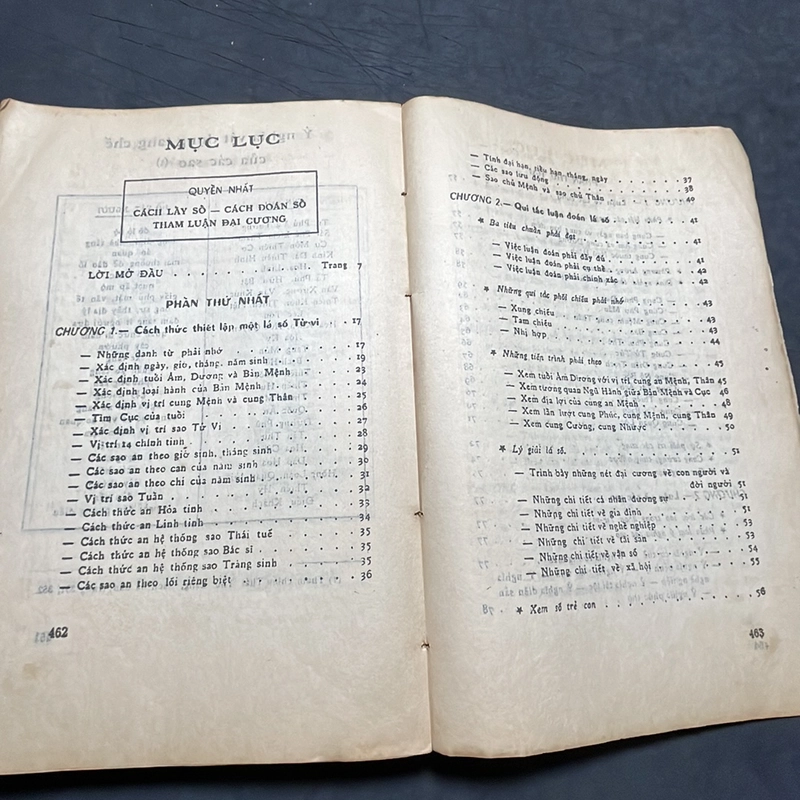 MỤC LỤC
QUYỂN NHẤT
CÁCH LẤY SỐ — CÁCH ĐOÁN SỐ
THAM LUẬN ĐẠI CƯƠNG
LỜI MỞ ĐẦU . . . . . . . . . . Trang 7
PHẦN THỨ NHẤT
CHƯƠNG 1.— Cách thức thiết lập một lá số Tử-vi . . 17
— Những danh từ phải nhớ . . . . . . . 17
— Xác định ngày, giờ, tháng, năm sinh . . . . 19
— Xác định tuổi Âm, Dương và Bản Mệnh . . . 23
— Xác định loại hành của Bản Mệnh . . . . . 24
— Xác định vị trí cung Mệnh và cung Thân . . . 25
— Tìm Cục của tuổi . . . . . . . . . 26
— Xác định vị trí sao Tử Vi . . . . . . . 27
— Vị trí 14 chính tinh . . . . . . . . . 28
— Các sao an theo giờ sinh, tháng sinh . . . . 29
— Các sao an theo can của năm sinh . . . . . 30
— Các sao an theo chi của năm sinh . . . . . 31
— Vị trí sao Tuần . . . . . . . . . . 32
— Cách thức an Hỏa tinh . . . . . . . . 33
— Cách thức an Linh tinh . . . . . . . . 34
— Cách thức an hệ thống sao Thái tuế . . . . 35
— Cách thức an hệ thống sao Bác sĩ . . . . . 35
— Cách thức an hệ thống sao Tràng sinh . . . . 35
— Các sao an theo lối riêng biệt . . . . . . 36
462
— Tính đại hạn, tiểu hạn, tháng, ngày . . . . . 37
— Các sao lưu động . . . . . . . . . 38
— Sao chủ Mệnh và sao chủ Thân . . . . . . 40
CHƯƠNG 2.— Qui tắc luận đoán lá số . . . . . . 41
★ Ba tiêu chuẩn phải đạt . . . . . . . . 41
— Việc luận đoán phải đầy đủ . . . . . . . 41
— Việc luận đoán phải cụ thể . . . . . . . 42
— Việc luận đoán phải chính xác . . . . . . 42
★ Những qui tắc phối chiếu phải nhớ . . . . . 43
— Xung chiếu . . . . . . . . . . . 43
— Tam chiếu . . . . . . . . . . . 43
— Nhị hợp . . . . . . . . . . . . 44
★ Những tiến trình phải theo . . . . . . . 45
— Xem tuổi Âm Dương với vị trí cung an Mệnh, Thân 45
— Xem tương quan Ngũ Hành giữa Bản Mệnh và Cục . 46
— Xem địa lợi của cung an Mệnh . . . . . . 48
— Xem lần lượt cung Phúc, cung Mệnh, cung Thân 49
— Xem cung Cường, cung Nhược . . . . . . 50
★ Lý giải lá số . . . . . . . . . . . 51
— Trình bày những nét đại cương về con người và
đời người . 51
— Những chi tiết cá nhân đương sự . . . . . 51
— Những chi tiết về gia đình . . . . . . . 51
— Những chi tiết về nghề nghiệp . . . . . . 53
— Những chi tiết về tài sản . . . . . . . 53
— Những chi tiết về vận số . . . . . . . 54
— Những chi tiết về xã hội . . . . . . . 55
★ Xem số trẻ con . . . . . . . . . . 56
463